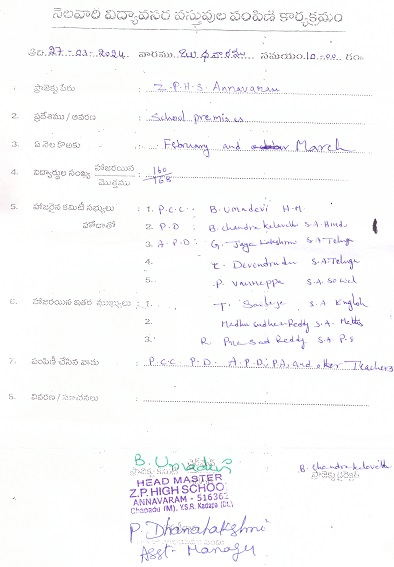 నెలవారి విద్యావసర వస్తువుల పంపిణీ కార్యక్రమం
తేది: 27-03-2024 వారము బుధవారము సమయం: 10-00 గం
1. ప్రాజెక్టు పేరు : Z.P.H.S. Annavaram
2. ప్రదేశము / ఆవరణ : School premises
3. ఏ నెల కొఱకు : February and March
4. విద్యార్థుల సంఖ్య హాజరయిన / మొత్తము : 160 / 168
5. హాజరైన కమిటీ సభ్యులు : 1. P.C.C. : B. Umadevi H.M.
హోదాతో 2. P.D : B. Chandra kalavathi S.A Hindi
3. A.P.D : G. Jaya Lakshmi S.A Telugu
4. E. Devendrudu S.A Telugu
5. P. S.A Social
6. హాజరయిన ఇతర ముఖ్యులు : 1. T. S.A English
2. Madhu sudhan Reddy S.A. Maths
3. R. Prasad Reddy S.A P.S
7. పంపిణీ చేసిన వారు : P.C.C. P.D. A.P.D. PA, and other Teachers
8. వివరణ / సూచనలు :
B. Umadevi
HEAD MASTER
Z.P. HIGH SCHOOL
ANNAVARAM - 516362
Chapadu (M), Y.S.R. Kadapa (Dt.)
B. Chandra kalavathi
ప్రాజెక్టు డైరెక్టర్
P. Dhanalakshmi
Asst- Manager